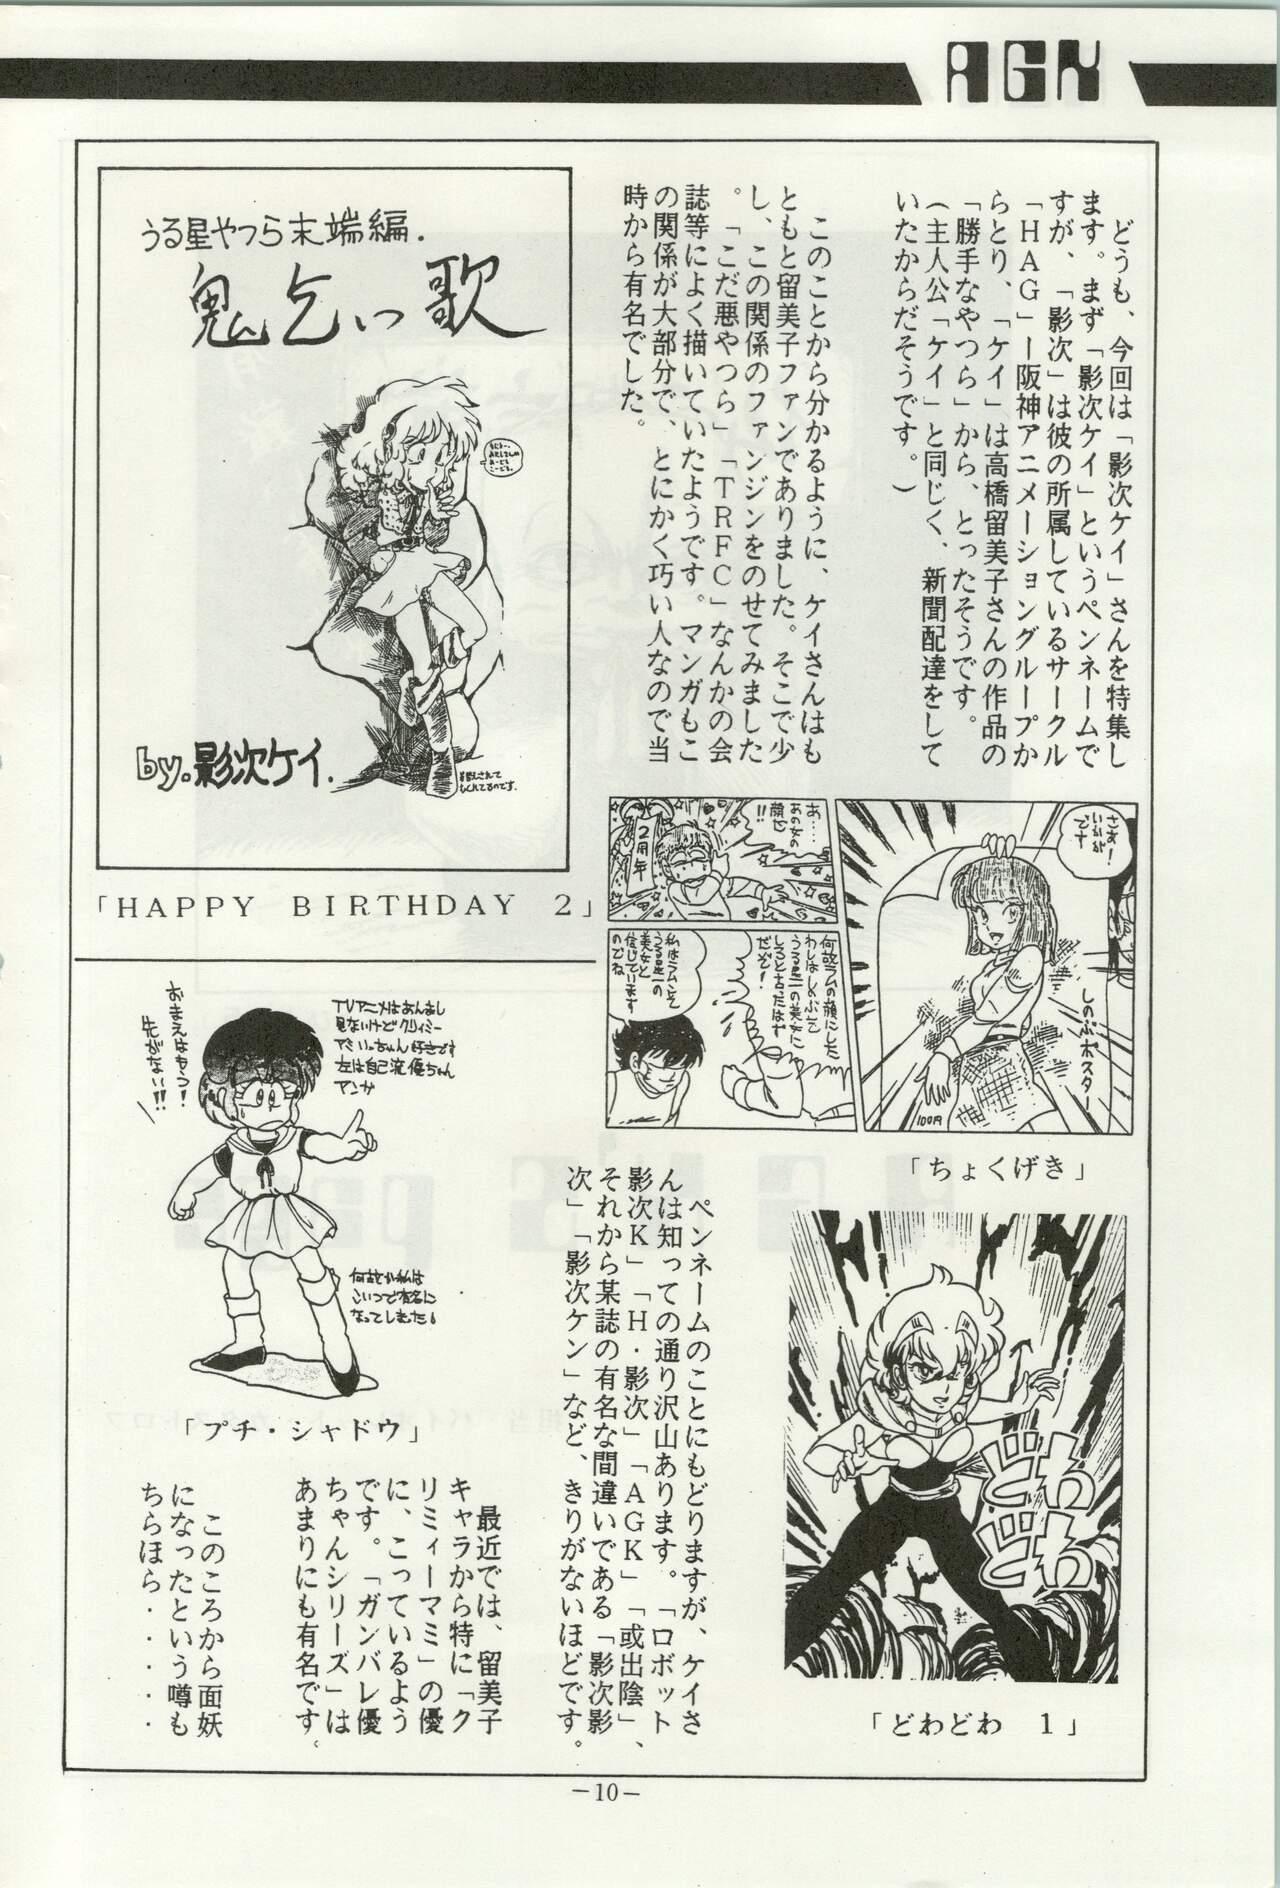 AGK
どうも、今回は「影次ケイ」さんを特集し
ます。まず「影次ケイ」というペンネームで
すが、「影次」は彼の所属しているサークル
「HAG」ー阪神アニメーショングループか
らとり、「ケイ」は高橋留美子さんの作品の
「勝手なやつら」から、とったそうです。
（主人公「ケイ」と同じく、新聞配達をして
いたからだそうです。）
このことから分かるように、ケイさんはも
ともと留美子ファンでありました。そこで少
し、この関係のファンジンをのせてみました
。「こだ悪やつら」「TRFC」なんかの会
誌等によく描いていたようです。マンガもこ
の関係が大部分で、とにかく巧い人なので当
時から有名でした。
うる星やつら末端編.
鬼乞い歌
by.影次ケイ.
「HAPPY BIRTHDAY 2」
さあ!
いかが
です
しのぶポスター
100円
あ……
あの女の
顔も
!!
2周年
何故ラムの顔にした
わしはしのぶこそ
うる星一の美女に
しろと言ったはず
だぞ!
私はラムこそ
うる星一の
美女と
信じています
のでね
「ちょくげき」
どわ
どわ
「どわどわ 1」
ペンネームのことにもどりますが、ケイさ
んは知っての通り沢山あります。「ロボット
影次K」「H・影次」「AGK」「或出陰」、
それから某誌の有名な間違いである「影次影
次」「影次ケン」など、きりがないほどです。
おまえはヤつ!
先がない!!
TVアニメはあんまし
見ないけどクリィミー
マミいっちゃん好きです
左は自己流優ちゃん
アンカ
何故か私は
こいつで有名に
なってしまた!
「プチ・シャドウ」
最近では、留美子
キャラから特に「ク
リミィーマミ」の優
に、こっているよう
です。「ガンバレ優
ちゃんシリーズ」は
あまりにも有名です。
このころから面妖
になったという噂も
ちらほら・・・・・
－10－